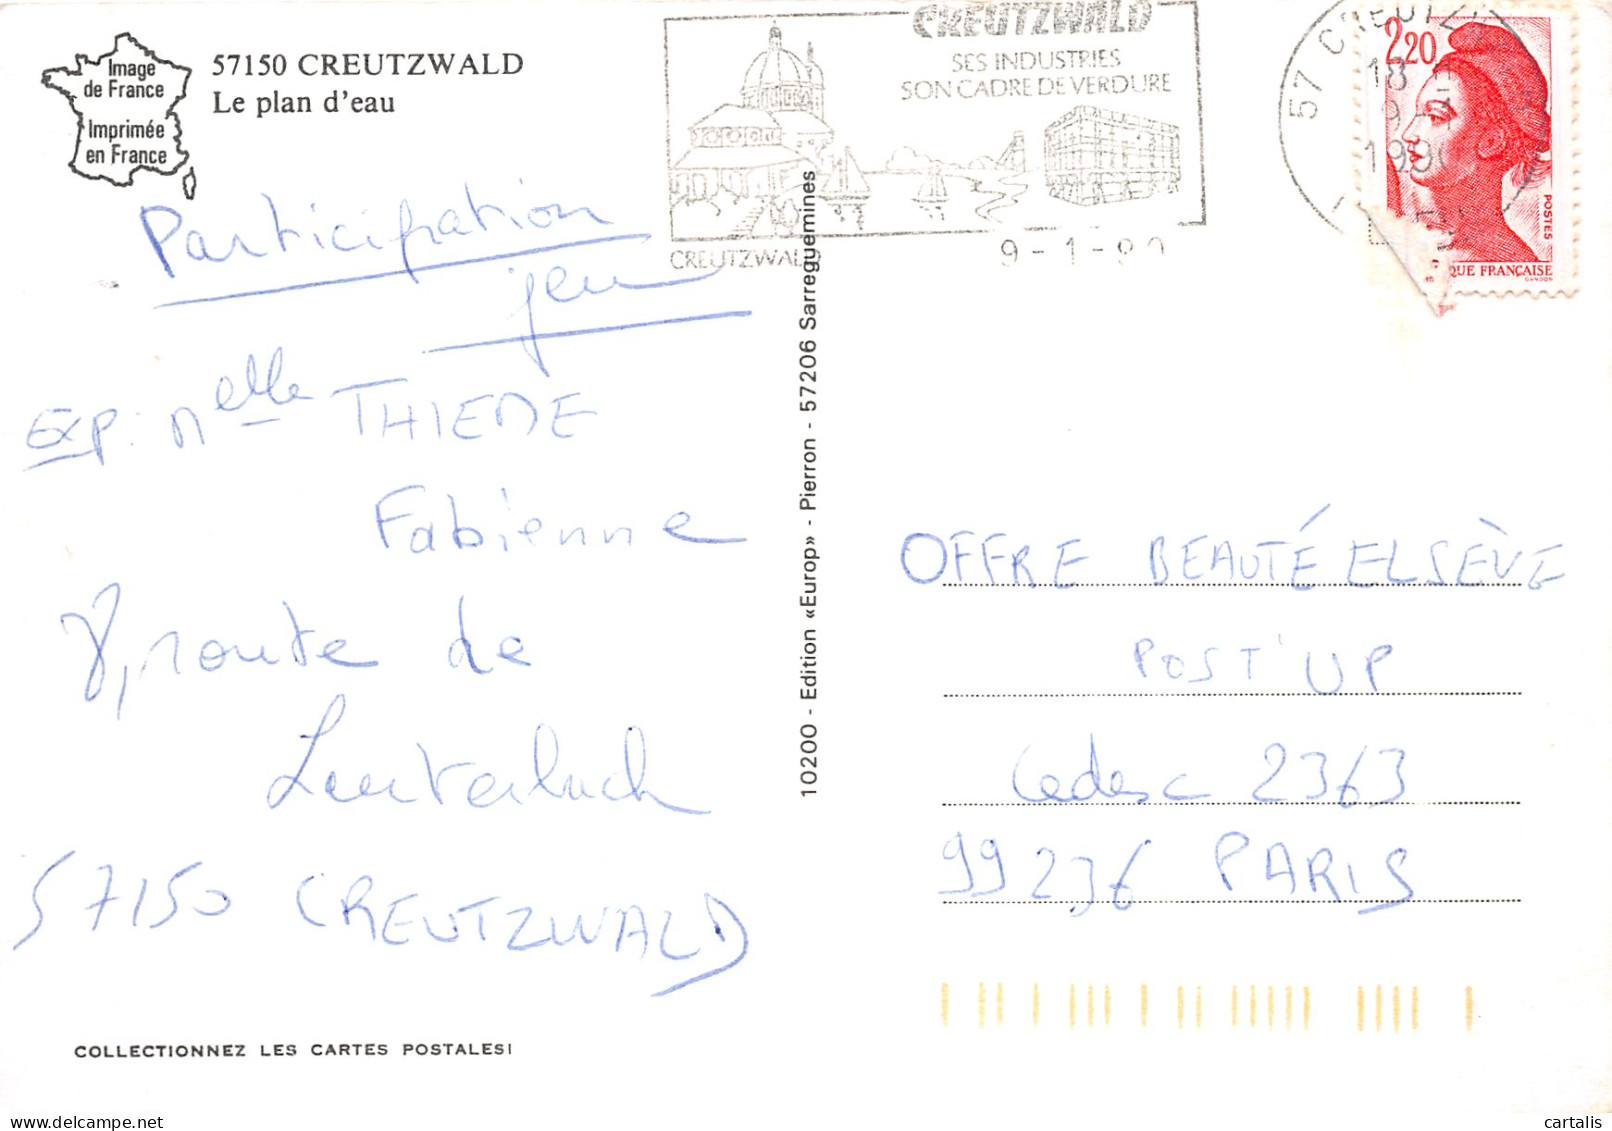 Image
de France
Imprimée
en France
57150 CREUTZWALD
Le plan d'eau
CREUTZWALD
SES INDUSTRIES
SON CADRE DE VERDURE
CREUTZWALD
9-1-90
57 CREUTZ
18
9-1
1990
2,20
POSTES
QUE FRANÇAISE
GANDON
Participation
jeu
EXP: Melle THIEME
Fabienne
8, route de
Lauterbach
57150 CREUTZWALD
COLLECTIONNEZ LES CARTES POSTALES!
10200 - Edition «Europ» - Pierron - 57206 Sarreguemines
OFFRE BEAUTÉ ELSÈVE
POST'UP
Cedex 2363
99236 PARIS
cartalis